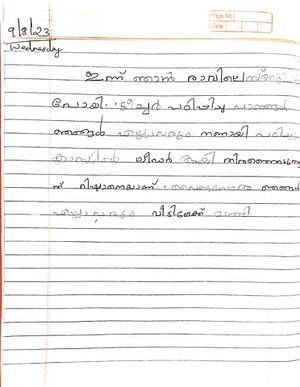 Page No.
Date
9/8/23
Wednesday
ഇന്ന് ഞാൻ രാവിലെ
പോയി. ടീച്ചർ പഠിപ്പിച്ച പാഠങ്ങൾ
ഞങ്ങൾ എല്ലാവരും നന്നായി പഠിച്ചു
ക്ലാസ്സിൽ ലീഡർ ആയി
ന് ഞങ്ങൾ
എല്ലാവരും വീട്ടിലേക്ക് മടങ്ങി